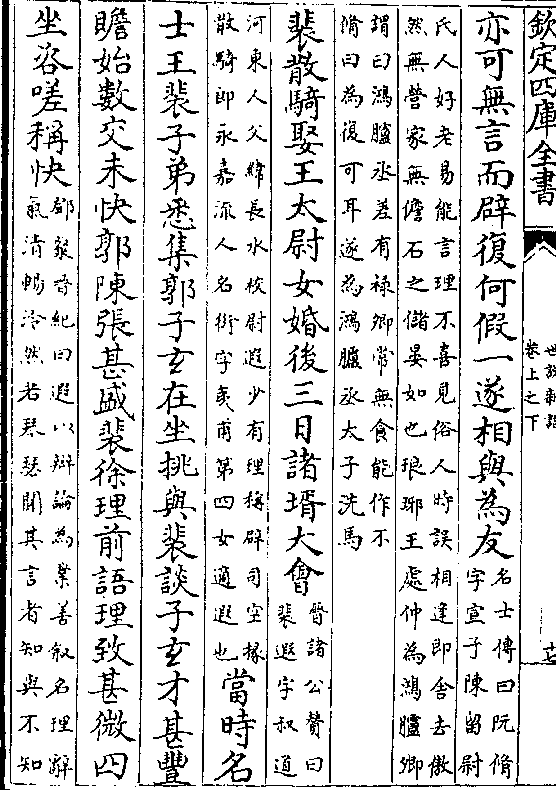 欽定四庫全書
世說新語
卷上之下
亦可無言而辟復何假一遂相與為友
名士傳曰阮脩
字宣子陳留尉
氏人好老易能言理不喜見俗人時誤相逢即舍去傲
然無營家無儋石之儲晏如也琅琊王處仲為鴻臚卿
謂曰鴻臚丞差有祿卿常無食能作不
脩曰為復可耳遂為鴻臚丞太子洗馬
裴散騎娶王太尉女婚後三日諸壻大會
晉諸公贊曰
裴遐字叔道
河東人父緯長水校尉遐少有理稱辟司空掾
散騎郎永嘉流人名衍字夷甫第四女適遐也
當時名
士王裴子弟悉集郭子玄在坐挑與裴談子玄才甚豐
贍始數交未快郭陳張甚盛裴徐理前語理致甚微四
坐咨嗟稱快
鄧粲晉紀曰遐以辯論為業善敘名理辭
氣清暢泠然若琴瑟聞其言者知與不知